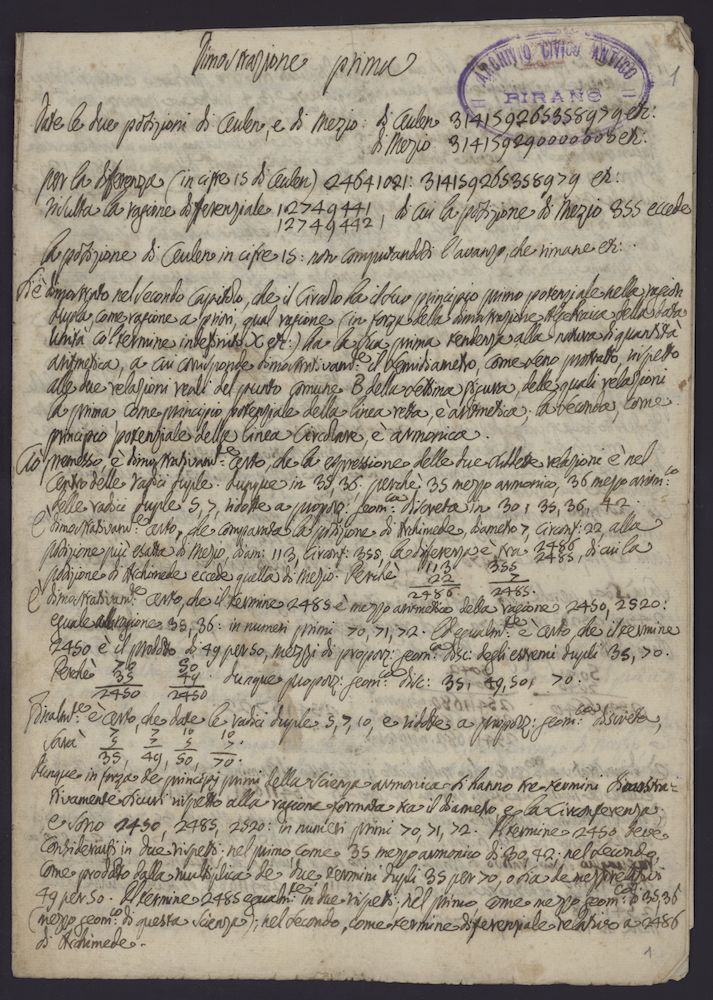 Dimostrazione prima
ARCHIVIO CIVICO ANTICO
PIRANO
1
Date le due posizioni di Ceulen, e di Mezio: di Ceulen 314159265358979 etc:
di Mezio 314159290000000 etc:
per la differenza (in cifre 15 di Ceulen) 24641021: 314159265358979 etc:
risulta la ragione differenziale 12749441 di cui la posizione di Mezio 355 eccede
12749442
la posizione di Ceulen in cifre 15: non computandosi l'avanzo, che rimane etc:
Si è dimostrato nel secondo Capitolo, che il Circolo ha il suo principio primo potenziale nella ragion
dupla come ragione a priori, qual ragione (in forza della dimostrazione Algebraica della data
unità co'l termine indefinito X etc:) ha la sua prima tendenza alla natura di quantità
aritmetica, a cui corrisponde dimostrativam.e il semidiametro, come seno prodotto, in rispetto
alle due relazioni reali del punto comune B della settima figura, delle quali relazioni
la prima come principio potenziale della linea retta, è aritmetica; la seconda, come
principio potenziale della linea Circolare, è armonica.
Ciò premesso, è dimostrativam.e certo, che la espressione delle due suddette relazioni è nel
centro delle radici duple: dunque in 35, 36, perchè 35 mezzo armonico, 36 mezzo aritm:co
delle radici duple 5, 7, ridotte a proporz: geom:ca discreta in 30, 35, 36, 42.
È dimostrativam.e certo, che comparata la posizione di Archimede, diametro 7, Circonf: 22, alla
posizione più esatta di Mezio, diam: 113, Circonf: 355, la differenza è tra 2486 di cui la
2485,
posizione di Archimede eccede quella di Mezio. Perchè 113 355
22 7
2486 2485.
È dimostrativam.e certo, che il termine 2485 è mezzo aritmetico della ragione 2450, 2520:
equale alla ragione 35, 36: in numeri primi 70, 71, 72. Ed egualm.te è certo, che il termine
2450 è il prodotto di 49 per 50, mezzi di proporz: geom:ca disc: degli estremi dupli 35, 70.
Perchè 70 50
35 49
2450 2450 dunque proporz: geom:ca disc: 35, 49, 50, 70.
Finalm.te è certo, che date le radici duple 5, 7, 10, e ridotte a proporz: geom:ca discreta,
sarà 7 7 10 10
5 7 5 7
35, 49, 50, 70.
Dunque in forza de' principj primi della scienza armonica si hanno tre termini dimostra-
tivamente sicuri rispetto alla ragione formata tra il diametro e la Circonferenza;
e sono 2450, 2485, 2520: in numeri primi 70, 71, 72. Il termine 2450 deve
considerarsi in due rispetti: nel primo come 35 mezzo armonico di 30, 42: nel secondo,
come prodotto dalla multiplica de' due termini dupli 35 per 70, o sia de' mezzi relativi
49 per 50. Il termine 2485 egualm.te in due rispetti: nel primo come mezzo geom:co di 35, 36
(mezzo geom:co di questa scienza); nel secondo, come termine differenziale relativo a 2486
di Archimede.
1